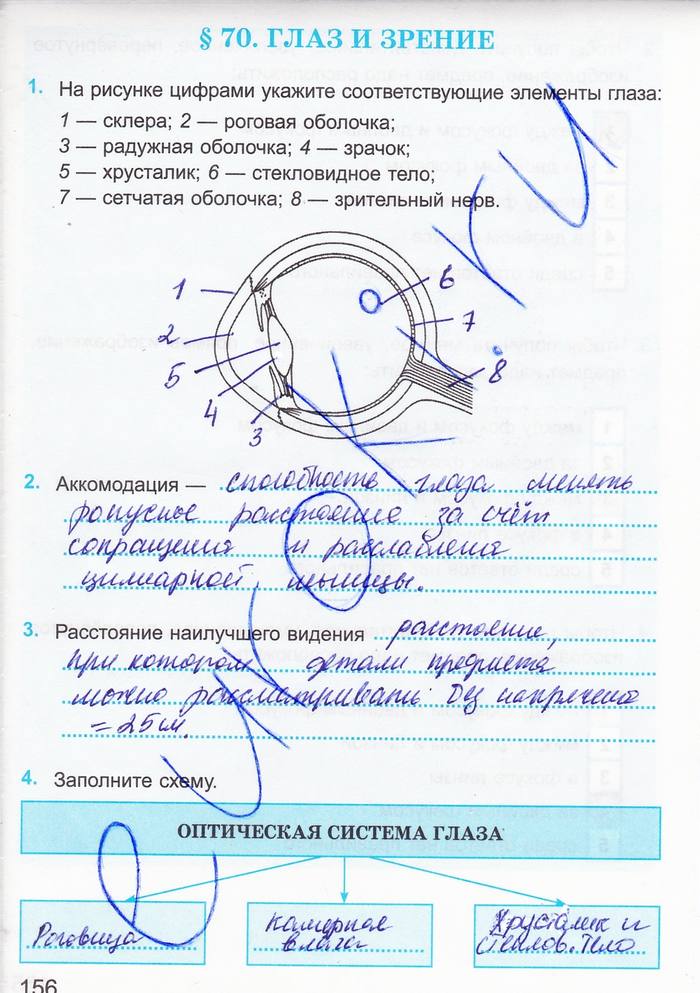 § 70. ГЛАЗ И ЗРЕНИЕ
1. На рисунке цифрами укажите соответствующие элементы глаза:
1 — склера; 2 — роговая оболочка;
3 — радужная оболочка; 4 — зрачок;
5 — хрусталик; 6 — стекловидное тело;
7 — сетчатая оболочка; 8 — зрительный нерв.
1
6
2
7
5
8
4
3
2. Аккомодация — способность глаза менять
расстояние за счёт
сокращения и расслабления
цилиарной мышцы.
3. Расстояние наилучшего видения расстояние,
при котором детали предмета
можно рассматривать без
= 25 см.
4. Заполните схему.
ОПТИЧЕСКАЯ СИСТЕМА ГЛАЗА
Роговица
Камерная
влага
Хрусталик и
стеклов. тело
156